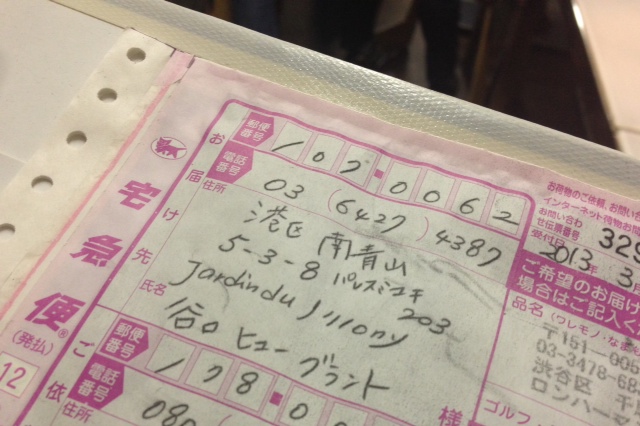 宅急便
(発払)
12
お届け先
郵便番号
107-0062
電話番号
03 (6427) 4387
住所
港区 南青山
5-3-8 パレスミユキ
203
氏名
Jardin du
谷口 ヒュー グラント
様
ご依
郵便番号
178-0
電話番号
080
住所
お荷物のご依頼、お問い
インターネット荷物お問
お問い合わせ伝票番号
329
受付日
2013年 3月
ご希望のお届け
場合はご記入く
品名
(ワレモノ・なま
〒151-005
03-3478-68
渋谷区 千
ロンハーマ
ゴルフ